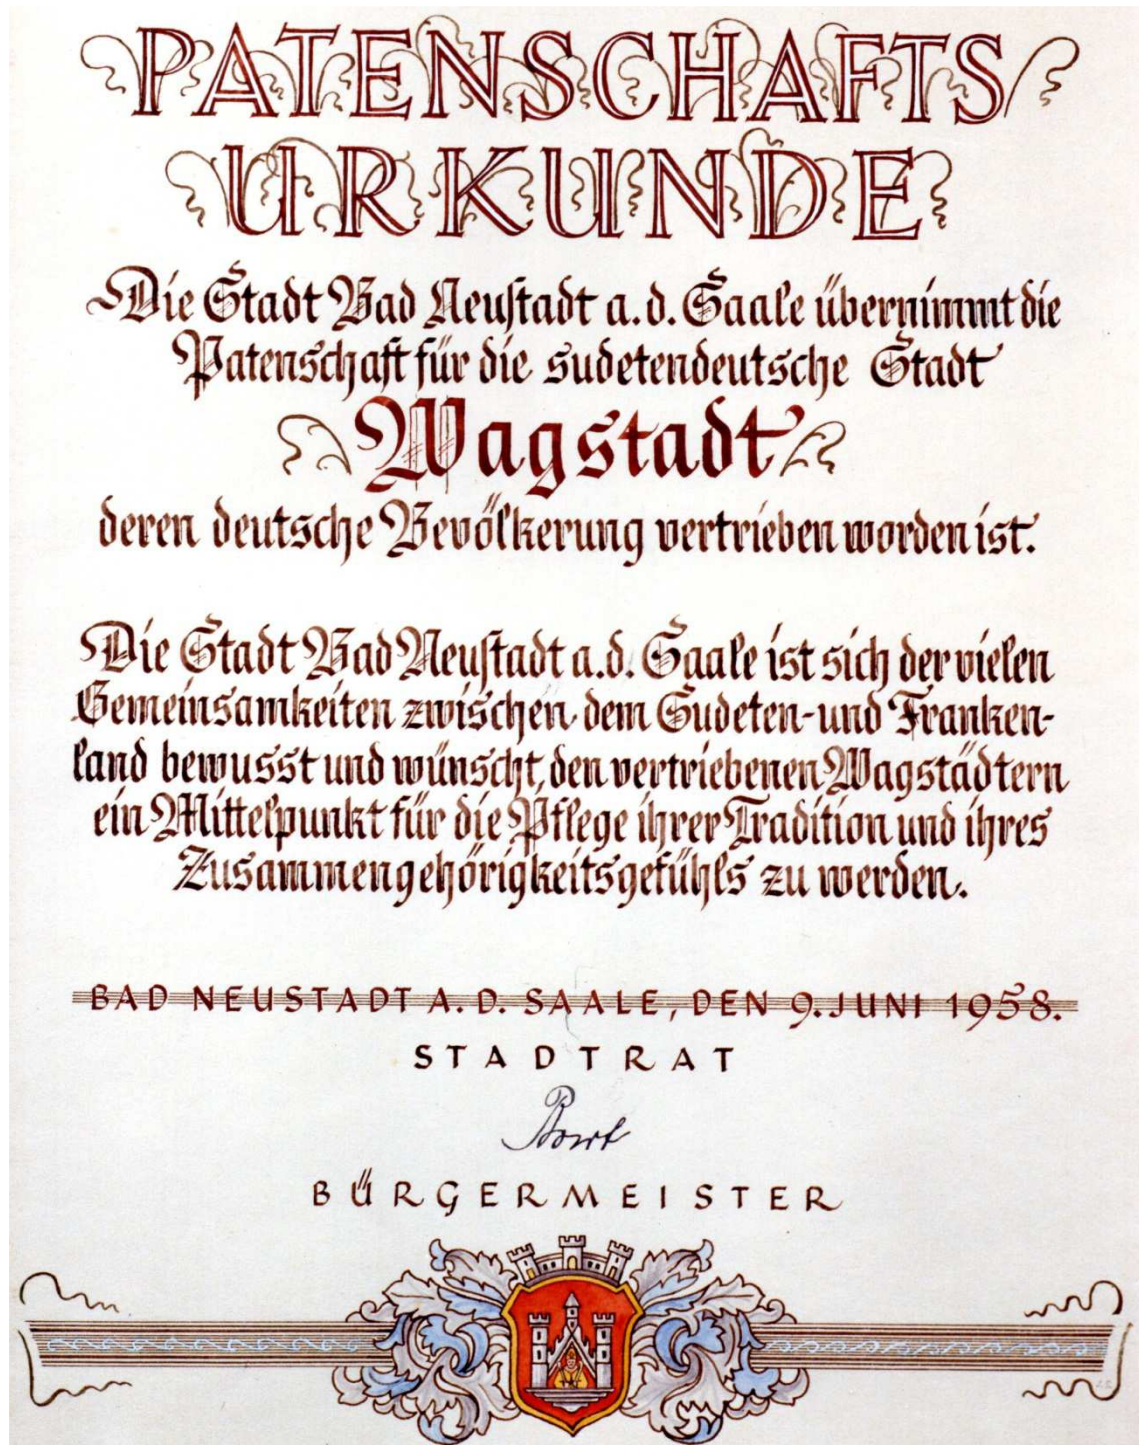 PATENSCHAFTS
URKUNDE
Die Stadt Bad Neustadt a. d. Saale übernimmt die
Patenschaft für die sudetendeutsche Stadt
Wagstadt
deren deutsche Bevölkerung vertrieben worden ist.
Die Stadt Bad Neustadt a. d. Saale ist sich der vielen
Gemeinsamkeiten zwischen dem Sudeten- und Franken-
land bewusst und wünscht, den vertriebenen Wagstädtern
ein Mittelpunkt für die Pflege ihrer Tradition und ihres
Zusammengehörigkeitsgefühls zu werden.
BAD NEUSTADT A. D. SAALE, DEN 9. JUNI 1958.
STADTRAT
BÜRGERMEISTER